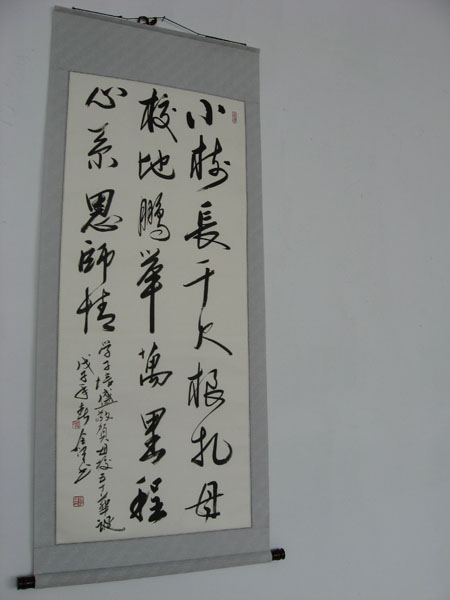 小树长千尺根扎母
校地鹏举万里程
心系恩师情
学子培盛敬贺母校五十华诞
戊子年春